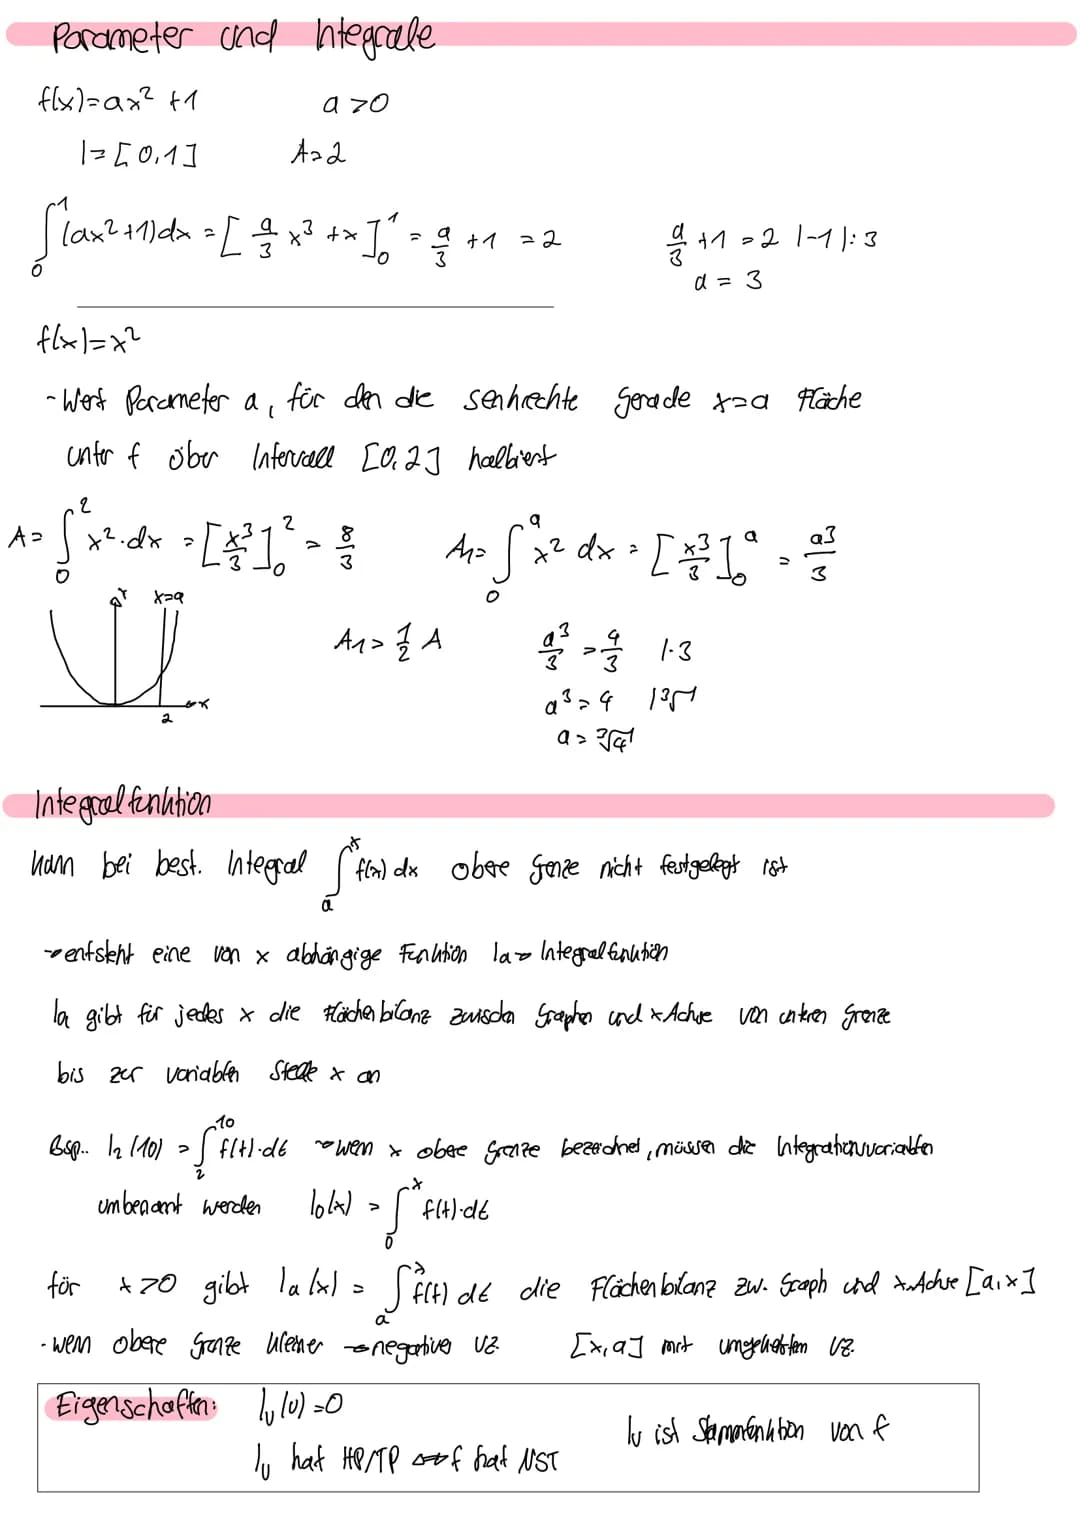 Parameter und Integrale
f(x)=ax² +1 a >0
I=[0,1] A=2
∫₀¹(ax²+1)dx = [a/3 x³ +x]₀¹ = a/3 +1 = 2 a/3 +1 = 2 |-1 |:3
a = 3
f(x)=x²
- Wert Parameter a, für den die senkrechte Gerade x=a Fläche
unter f über Intervall [0,2] halbiert
A= ∫₀² x²·dx = [x³/3]₀² = 8/3 A₁= ∫₀ᵃ x² dx = [x³/3]₀ᵃ = a³/3
y x=a
A₁= 1/2 A a³/3 = 4/3 |·3
x a³ = 4 |³√
2
a = ³√4
Integralfunktion
kann bei best. Integral ∫ₐˣ f(x) dx obere Grenze nicht festgelegt ist
→ entsteht eine von x abhängige Funktion Ia → Integralfunktion
Ia gibt für jedes x die Flächenbilanz zwischen Graphen und x Achse von unteren Grenze
bis zur variablen Stelle x an
Bsp.. I₂(10) = ∫₂¹⁰ f(t)·dt → wenn x obere Grenze bezeichnet, müssen die Integrationsvariablen
umbenannt werden I₀(x) = ∫₀ˣ f(t)·dt
für x >0 gibt Ia(x) = ∫ₐˣ f(t) dt die Flächenbilanz zw. Graph und x.Achse [a,x]
- wenn obere Grenze kleiner → negatives VZ. [x,a] mit umgekehrten VZ.
Eigenschaften: Iᵤ(u)=0
Iᵤ ist Stammfunktion von f
Iᵤ hat HP/TP ⇔ f hat NST